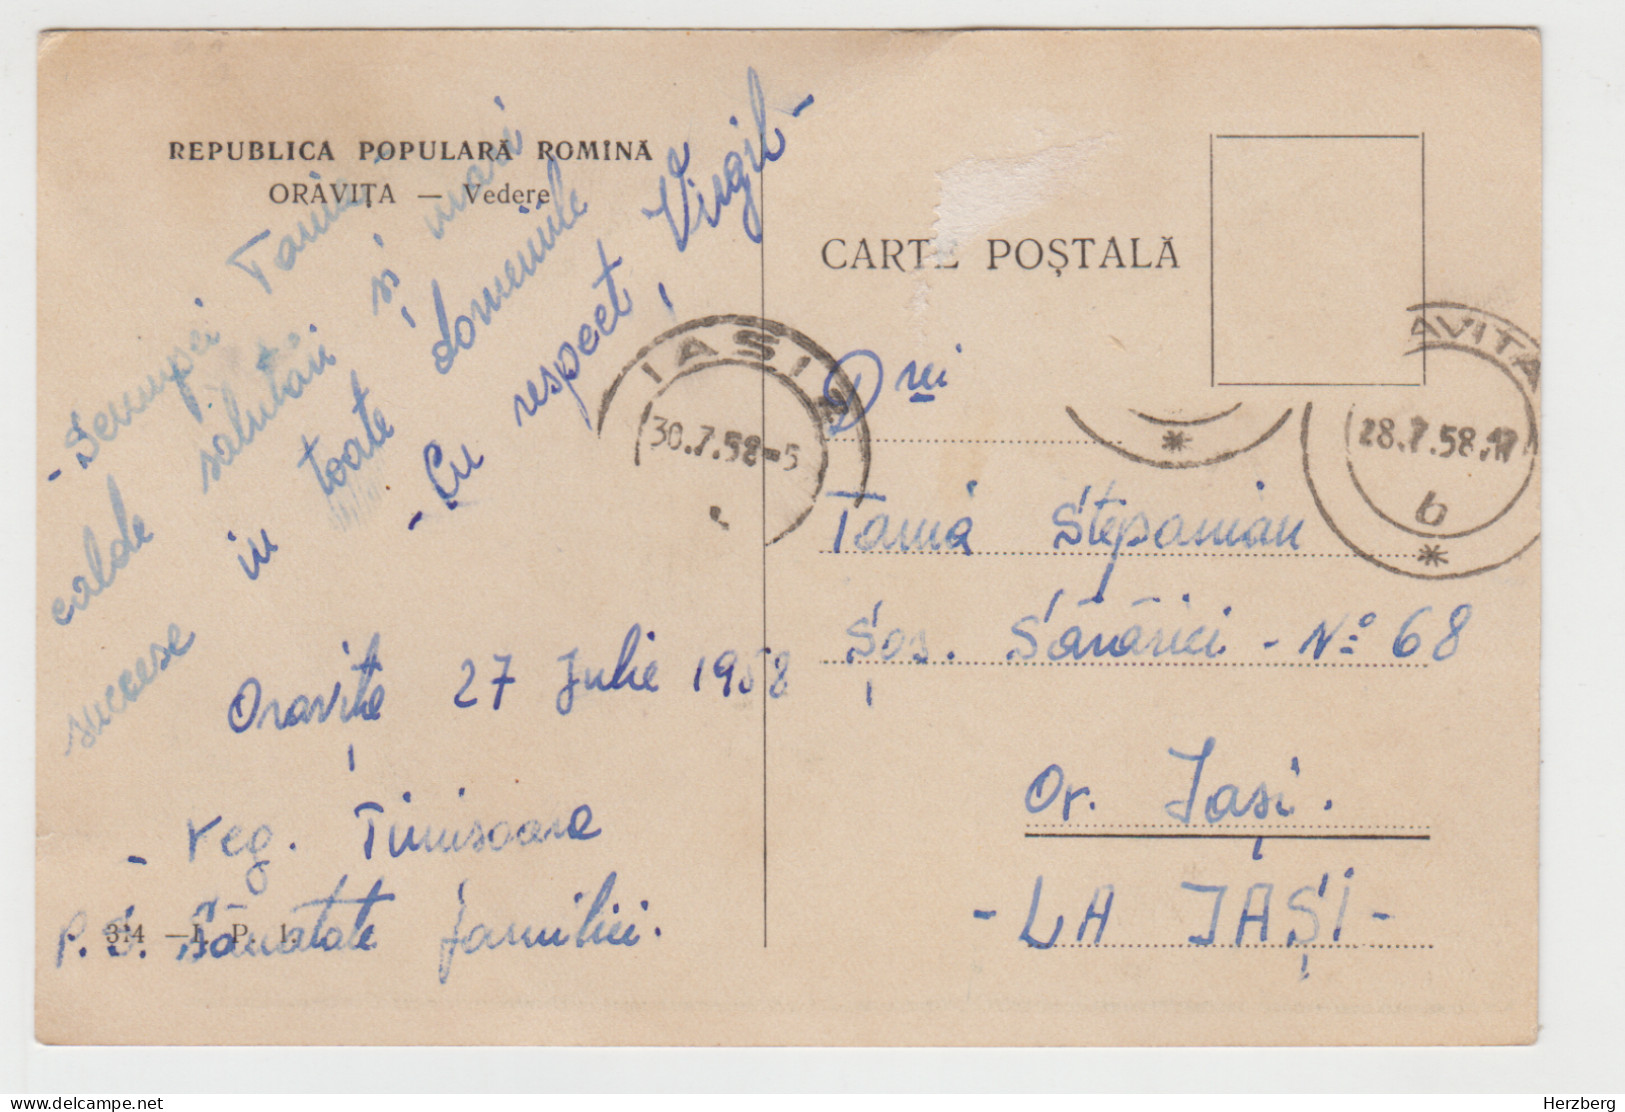 REPUBLICA POPULARĂ ROMÎNĂ
ORĂVIȚA — Vedere
- Scumpei Tania
calde salutări și mari
succese in toate domeniile
- Cu respect, Virgil -
Oravița 27 Julie 1958
- reg. Timisoara
P. S. Sănătate familiei.
314 — I. P. 1.
CARTE POȘTALĂ
IASI 2
30.7.58-5
AVITA
28.7.58.17
b
Dnei
Tania Stepanian
Șos. Sărăriei - No 68
Or. Iași.
- LA IAȘI -
delcampe.net
Herzberg